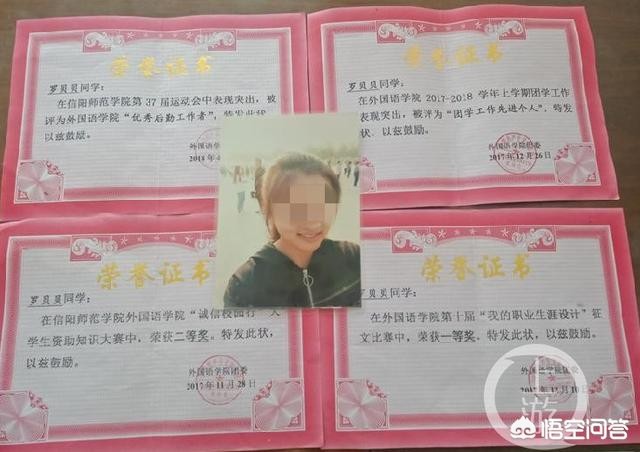 荣誉证书
罗贝贝同学：
在信阳师范学院第37届运动会中表现突出，被
评为外国语学院“优秀后勤工作者”，特发此状，
以兹鼓励。
外国语学院
2018年
荣誉证书
罗贝贝同学：
在外国语学院2017-2018学年上学期团学工作
表现突出，被评为“团学工作先进个人”，特发
状，以兹鼓励。
外国语学院团委
2017年12月26日
荣誉证书
罗贝贝同学：
在信阳师范学院外国语学院“诚信校园行”大
学生资助知识大赛中，荣获二等奖。特发此状，
以兹鼓励。
外国语学院团委
2017年11月28日
荣誉证书
罗贝贝同学：
在外国语学院第十届“我的职业生涯设计”征
文比赛中，荣获一等奖。特发此状，以兹鼓励。
外国语学院团委
12月10日
游
悟空问答